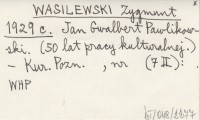 WASILEWSKI Zygmunt
1929 c. Jan Gwalbert Pawlikow-
ski. (50 lat pracy kulturalnej.)
- Kur. Pozn. , nr (7 II).
WHP